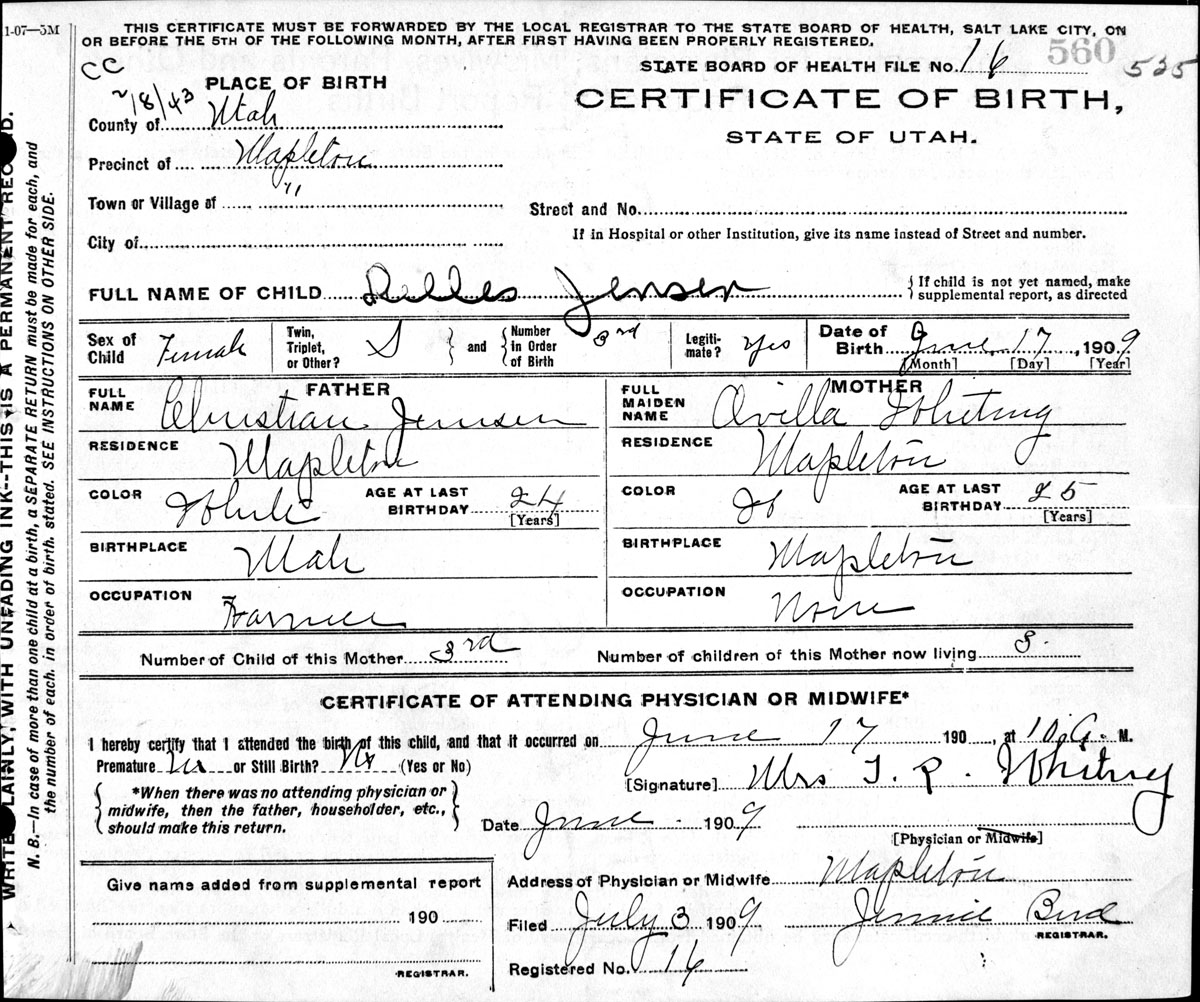 1-07—5M
THIS CERTIFICATE MUST BE FORWARDED BY THE LOCAL REGISTRAR TO THE STATE BOARD OF HEALTH, SALT LAKE CITY, ON
OR BEFORE THE 5TH OF THE FOLLOWING MONTH, AFTER FIRST HAVING BEEN PROPERLY REGISTERED.
CC
2/8/43
STATE BOARD OF HEALTH FILE No. 16 560 535
PLACE OF BIRTH
CERTIFICATE OF BIRTH,
STATE OF UTAH.
County of Utah
Precinct of Mapleton
Town or Village of "
Street and No.
City of
If in Hospital or other Institution, give its name instead of Street and number.
FULL NAME OF CHILD Jensen { If child is not yet named, make supplemental report, as directed
Sex of Child Female
Twin, Triplet, or Other? S } and { Number in Order of Birth 3rd
Legitimate? Yes
Date of Birth June 17, 1909
[Month] [Day] [Year]
FATHER
FULL NAME Christian Jensen
RESIDENCE Mapleton
COLOR White
AGE AT LAST BIRTHDAY 24
[Years]
BIRTHPLACE Utah
OCCUPATION Farmer
MOTHER
FULL MAIDEN NAME Avilla Whiting
RESIDENCE Mapleton
COLOR W
AGE AT LAST BIRTHDAY 25
[Years]
BIRTHPLACE Mapleton
OCCUPATION None
Number of Child of this Mother 3rd
Number of children of this Mother now living 3.
CERTIFICATE OF ATTENDING PHYSICIAN OR MIDWIFE*
I hereby certify that I attended the birth of this child, and that it occurred on June 17 190 , at 10 A. M.
Premature No or Still Birth? No (Yes or No)
[Signature] Mrs T. R. Whitney
{ *When there was no attending physician or
midwife, then the father, householder, etc.,
should make this return. }
Date June 1909
[Physician or Midwife]
Give name added from supplemental report
190
REGISTRAR.
Address of Physician or Midwife Mapleton
Filed July 3 1909 Jennie Bird
REGISTRAR.
Registered No. 16
WRITE PLAINLY, WITH UNFADING INK--THIS IS A PERMANENT RECORD.
N. B.—In case of more than one child at a birth, a SEPARATE RETURN must be made for each, and
the number of each, in order of birth, stated. SEE INSTRUCTIONS ON OTHER SIDE.